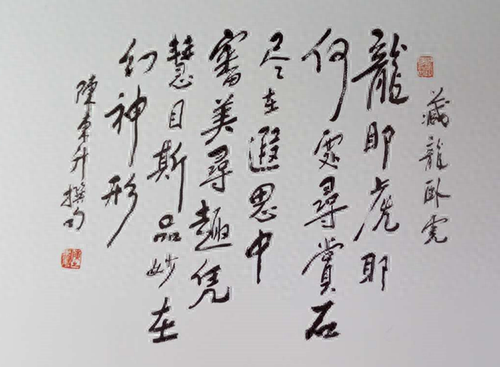 藏龍臥虎
龍耶虎耶
何處尋賞石
尽在遐思中
審美尋趣凭
慧目斯品妙在
幻神形
陳升撰句